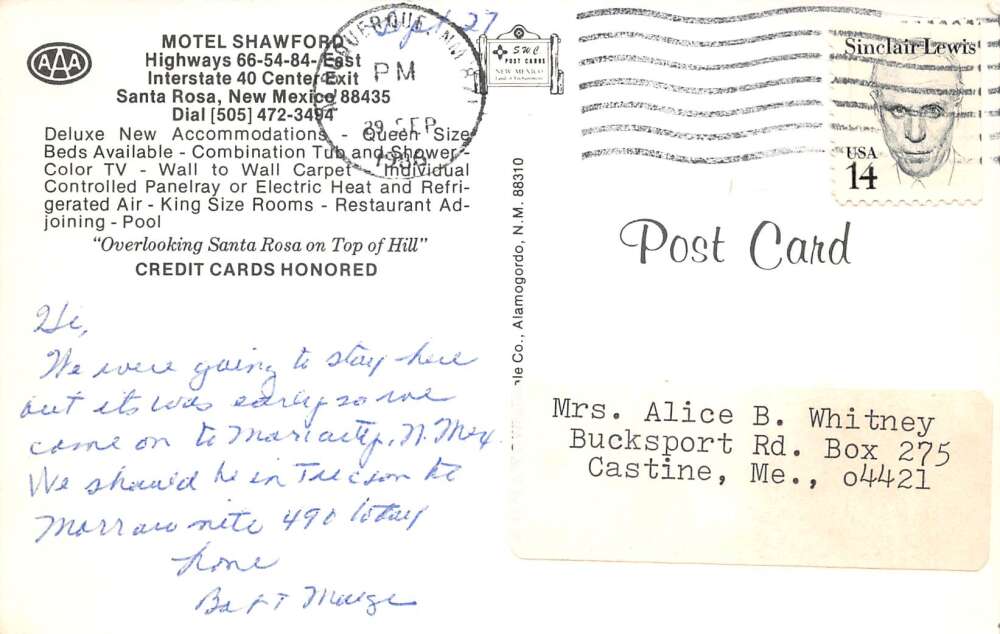 AAA
MOTEL SHAWFORD
Highways 66-54-84-East
Interstate 40 Center Exit
Santa Rosa, New Mexico 88435
Dial [505] 472-3494
Deluxe New Accommodations - Queen Size
Beds Available - Combination Tub and Shower -
Color TV - Wall to Wall Carpet - Individual
Controlled Panelray or Electric Heat and Refri-
gerated Air - King Size Rooms - Restaurant Ad-
joining - Pool
"Overlooking Santa Rosa on Top of Hill"
CREDIT CARDS HONORED
Sept 27
ALBUQUERQUE NM 871
PM
29 SEP
SWC
POST CARDS
NEW MEXICO
Land of Enchantment
Sinclair Lewis
USA
14
Post Card
le Co., Alamogordo, N.M. 88310
Hi,
We were going to stay here
but its was early so we
came on to Moriarty, N. Mex.
We should be in Tucson to
morrow nite 490 today
Love
Mrs. Alice B. Whitney
Bucksport Rd. Box 275
Castine, Me., 04421